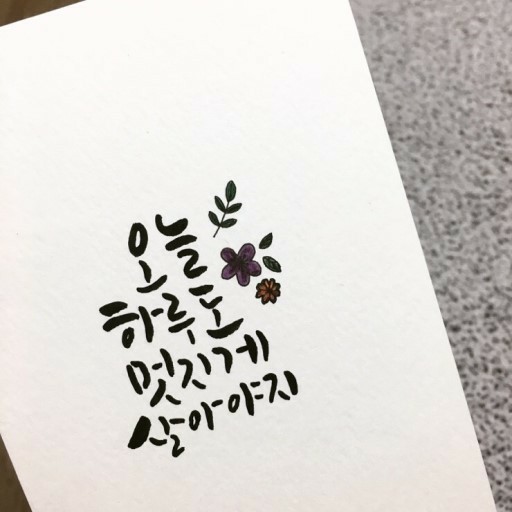 오늘
하루도
멋지게
살아야지